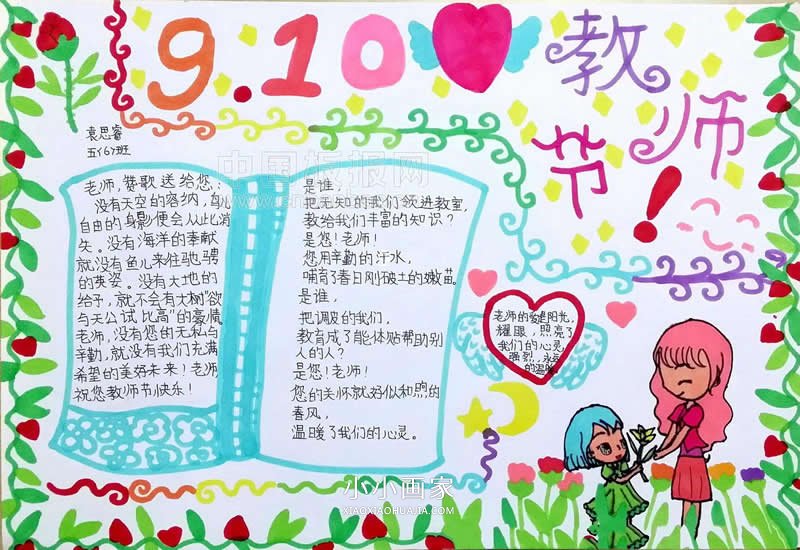 9.10
教师节！
袁思睿
五(6)班
老师,赞歌送给您:
没有天空的容纳,鸟儿
自由的身影便会从此消
失。没有海洋的奉献
就没有鱼儿来往驰骋
的英姿。没有大地的
给予,就不会有大树"欲
与天公试比高"的豪情
老师,没有您的无私与
辛勤,就没有我们充满
希望的美好未来!老师
祝您教师节快乐!
是谁,
把无知的我们领进教室,
教给我们丰富的知识?
是您!老师!
您用辛勤的汗水,
哺育了春日刚破土的嫩苗。
是谁,
把调皮的我们,
教育成了能体贴帮助别
人的人?
是您!老师!
您的关怀就好似和煦的
春风,
温暖了我们的心灵。
老师的爱是阳光,
耀眼,照亮了
我们的心灵
强烈,永远
的温暖
中国板报网
小小画家
XIAOXIAOHUAJIA.COM